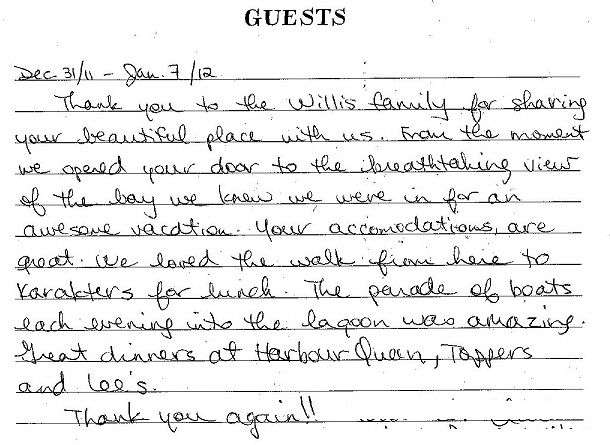 GUESTS
Dec 31/11 - Jan. 7/12
Thank you to the Willis family for sharing
your beautiful place with us. From the moment
we opened your door to the breathtaking view
of the bay we knew we were in for an
awesome vacation. Your accomodations, are
great. We loved the walk from here to
Karakters for lunch. The parade of boats
each evening into the lagoon was amazing.
Great dinners at Harbour Queen, Toppers
and Lee's.
Thank you again!!